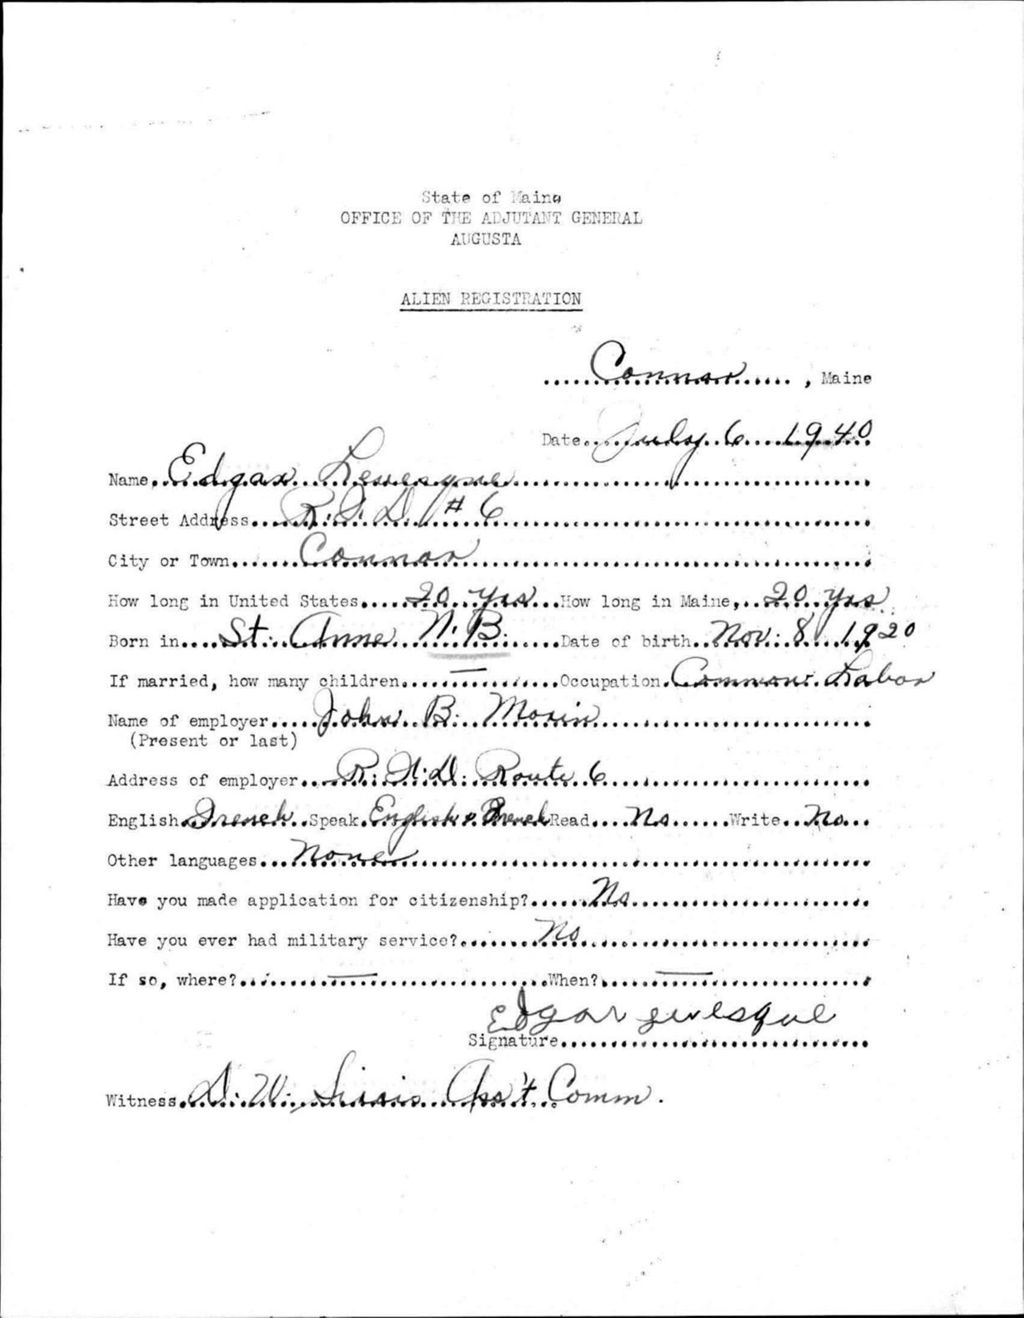 State of Maine
OFFICE OF THE ADJUTANT GENERAL
AUGUSTA
ALIEN REGISTRATION
Connor, Maine
Date July 6 1940
Name Edgar Levesque
Street Address R.F.D. # 6
City or Town Connor
How long in United States 20 yrs How long in Maine 20 yrs
Born in St. Anne N.B. Date of birth Nov. 8, 1920
If married, how many children — Occupation Common Labor
Name of employer John B. Morin
(Present or last)
Address of employer R.F.D. Route 6
English French Speak English & French Read No Write No
Other languages None
Have you made application for citizenship? No
Have you ever had military service? No
If so, where? — When? —
Edgar
Signature
Witness D.W. Ass't Comm.